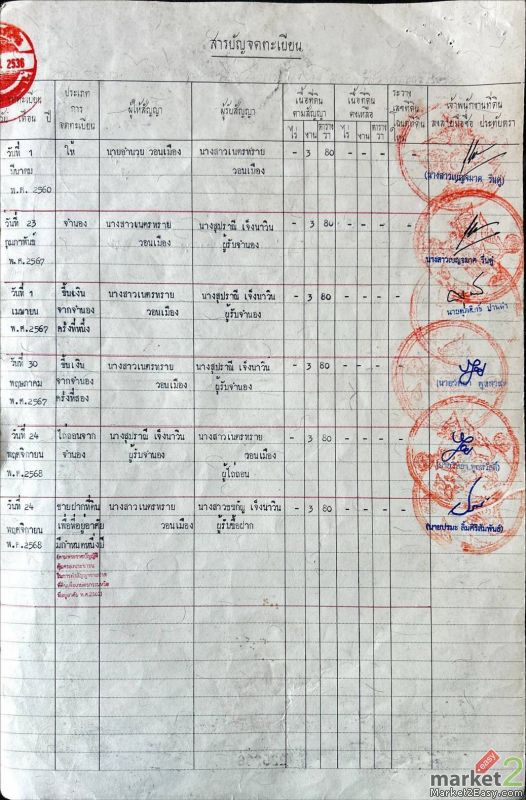 สารบัญจดทะเบียน
2536
จดทะเบียน วัน เดือน ปี
ประเภท การ จดทะเบียน
ผู้ให้สัญญา
ผู้รับสัญญา
เนื้อที่ดิน ตามสัญญา
ไร่ งาน ตารางวา
เนื้อที่ดิน คงเหลือ
ไร่ งาน ตารางวา
ระวาง เลขที่ดิน โฉนดที่ดิน ใหม่
เจ้าพนักงานที่ดิน ลงลายมือชื่อ ประทับตรา
วันที่ 1 ให้ นายอำนวย วอนเมือง นางสาวเนตรทราย - 3 80 - - - -
มีนาคม วอนเมือง
พ.ศ. 2560
วันที่ 23 จำนอง นางสาวเนตรทราย นางสุปราณี เจ็งนาวิน - 3 80 - - - -
กุมภาพันธ์ วอนเมือง ผู้รับจำนอง
พ.ศ. 2567
วันที่ 1 ขึ้นเงิน นางสาวเนตรทราย นางสุปราณี เจ็งนาวิน - 3 80 - - - -
เมษายน จากจำนอง วอนเมือง ผู้รับจำนอง
พ.ศ. 2567 ครั้งที่หนึ่ง
วันที่ 30 ขึ้นเงิน นางสาวเนตรทราย นางสุปราณี เจ็งนาวิน - 3 80 - - - -
พฤษภาคม จากจำนอง วอนเมือง ผู้รับจำนอง
พ.ศ. 2567 ครั้งที่สอง
วันที่ 24 ไถ่ถอนจาก นางสุปราณี เจ็งนาวิน นางสาวเนตรทราย - 3 80 - - - -
พฤศจิกายน จำนอง ผู้รับจำนอง วอนเมือง
พ.ศ. 2568 ผู้ไถ่ถอน
วันที่ 24 ขายฝากที่ดิน นางสาวเนตรทราย เจ็งนาวิน - 3 80 - - - -
พฤศจิกายน เพื่อที่อยู่อาศัย วอนเมือง ผู้รับซื้อฝาก
พ.ศ. 2568 มีกำหนดหนึ่งปี
(นายปรมะ ลิ้มศิริสัมพันธ์)
easy
market2
Market2Easy.com